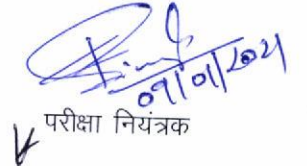 09/01/2021
परीक्षा नियंत्रक